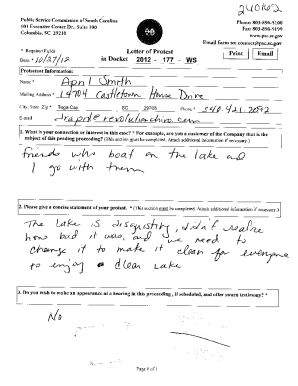 240802
Public Service Commission of South Carolina
101 Executive Center Dr., Suite 100
Columbia, SC 29210
Phone: 803-896-5100
Fax: 803-896-5199
www.psc.sc.gov
Email form to: contact@psc.sc.gov
* Required Fields
Letter of Protest
Print Email
Date * 10/27/12
in Docket 2012 - 177 - WS
Protestant Information:
Name * April Smith
Mailing Address * 14704 Castletown House Drive
City, State Zip * Tega Cay SC 29708 Phone * 540.421.2092
E-mail
1. What is your connection or interest in this case? * For example, are you a customer of the Company that is the
subject of this pending proceeding? (This section must be completed. Attach additional information if necessary.)
friends who boat on the lake and
I go with them
2. Please give a concise statement of your protest. * (This section must be completed. Attach additional information if necessary.)
The lake is disgusting, didn't realize
how bad it was, and we need to
change it to make it clean for everyone
to enjoy a clean lake
3. Do you wish to make an appearance at a hearing in this proceeding, if scheduled, and offer sworn testimony? *
No
Page 1 of 1